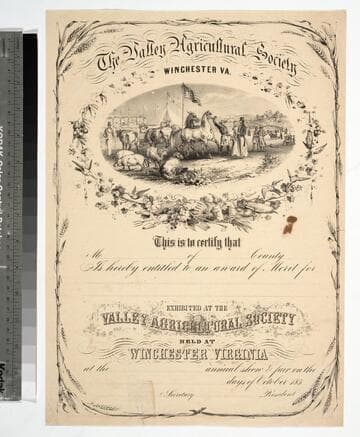 The Valley Agricultural Society
WINCHESTER VA.
This is to certify that
M of County
Is hereby entitled to an award of Merit for
EXHIBITED AT THE
VALLEY AGRICULTURAL SOCIETY
HELD AT
WINCHESTER VIRGINIA
at the annual show & fair on the
days of October 185
Secretary President
Kodak